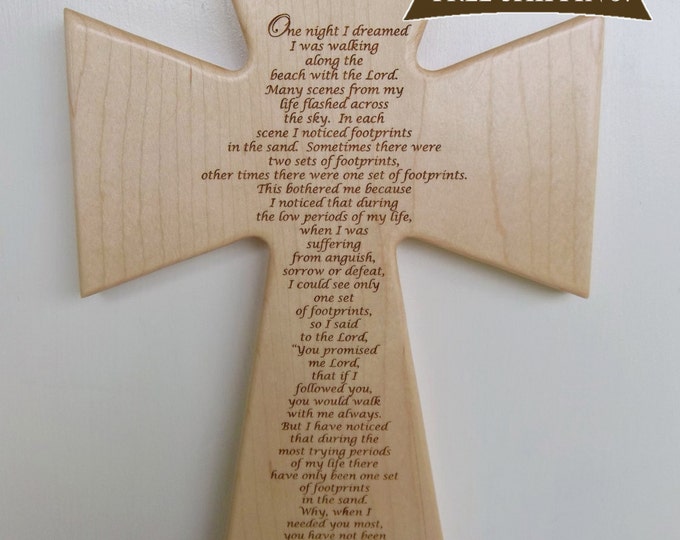 FREE SHIPPING!
One night I dreamed
I was walking
along the
beach with the Lord.
Many scenes from my
life flashed across
the sky. In each
scene I noticed footprints
in the sand. Sometimes there were
two sets of footprints,
other times there were one set of footprints.
This bothered me because
I noticed that during
the low periods of my life,
when I was
suffering
from anguish,
sorrow or defeat,
I could see only
one set
of footprints,
so I said
to the Lord,
"You promised
me Lord,
that if I
followed you,
you would walk
with me always.
But I have noticed
that during the
most trying periods
of my life there
have only been one set
of footprints
in the sand.
Why, when I
needed you most,
you have not been